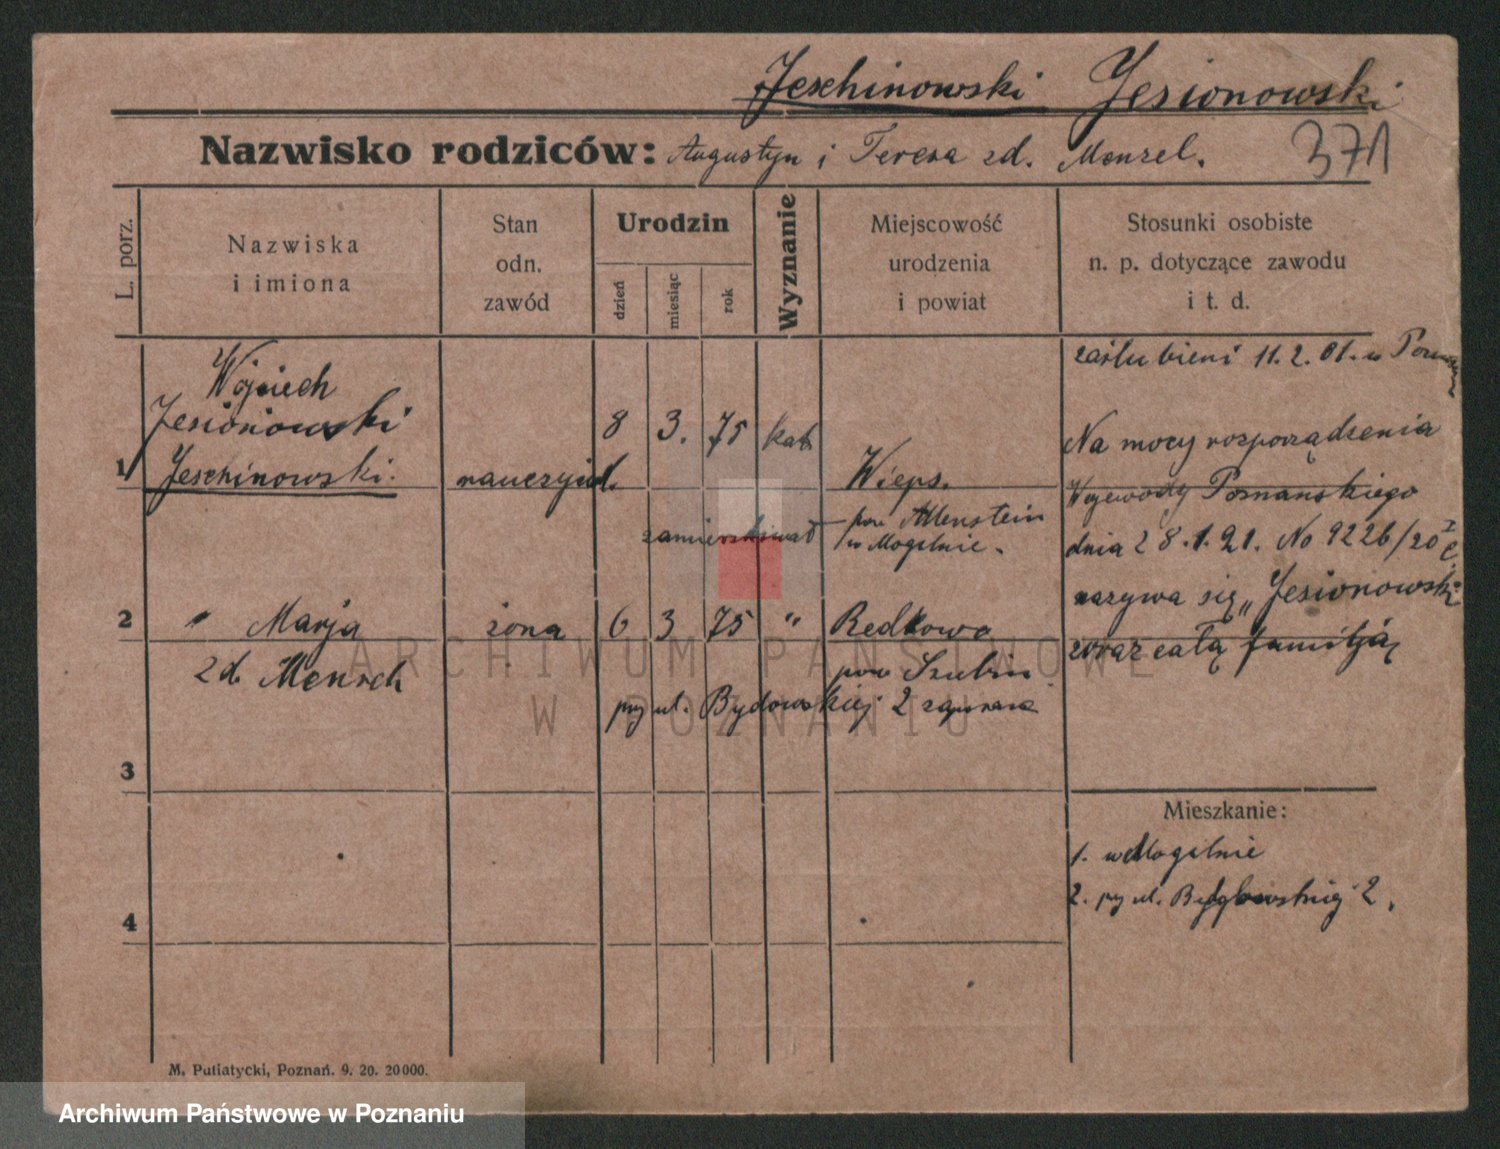 Jeschinowski Jesionowski
Nazwisko rodziców: Augustyn i Teresa zd. Menzel.
371
L. porz.
Nazwiska
i imiona
Stan
odn.
zawód
Urodzin
dzień
miesiąc
rok
Wyznanie
Miejscowość
urodzenia
i powiat
Stosunki osobiste
n. p. dotyczące zawodu
i t. d.
1
Wojciech
Jesionowski
Jeschinowski.
nauczyciel.
8 3. 75 kat.
Wieps.
pow Allenstein
zamieszkiwał w Mogilnie.
zaślubieni 11.2.01. w Poznaniu
Na mocy rozporządzenia
Wojewody Poznańskiego
dnia 28.1.21. No 9226/20
nazywa się „Jesionowski
wraz całą familją
2
" Marja
zd. Mensch
żona
6 3 75 "
Redkowo
pow Szubin
przy ul. Bydgowskiej 2
3
4
Mieszkanie:
1. w Mogilnie
2. przy ul. Bydgowskiej 2.
M. Putiatycki, Poznań. 9. 20. 20000.
ARCHIWUM PAŃSTWOWE
W POZNANIU
Archiwum Państwowe w Poznaniu